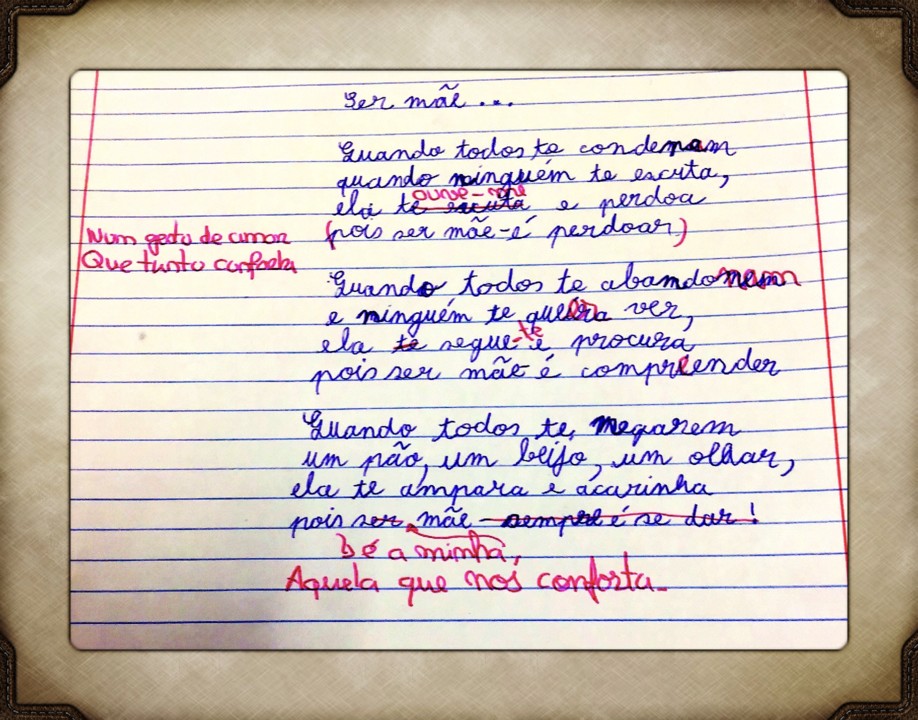 Ser mãe ...
Quando todos te condenam
quando ninguém te escuta,
ouve-me
ela te escuta e perdoa
(pois ser mãe é perdoar)
Num gesto de amor
Que tanto conforta
Quando todos te abandonam
e ninguém te queira ver,
ela te segue-te e procura
pois ser mãe é compreender
Quando todos te, negarem
um pão, um beijo, um olhar,
ela te ampara e acarinha
pois ser mãe sempre é se dar!
é a minha,
Aquela que nos conforta.